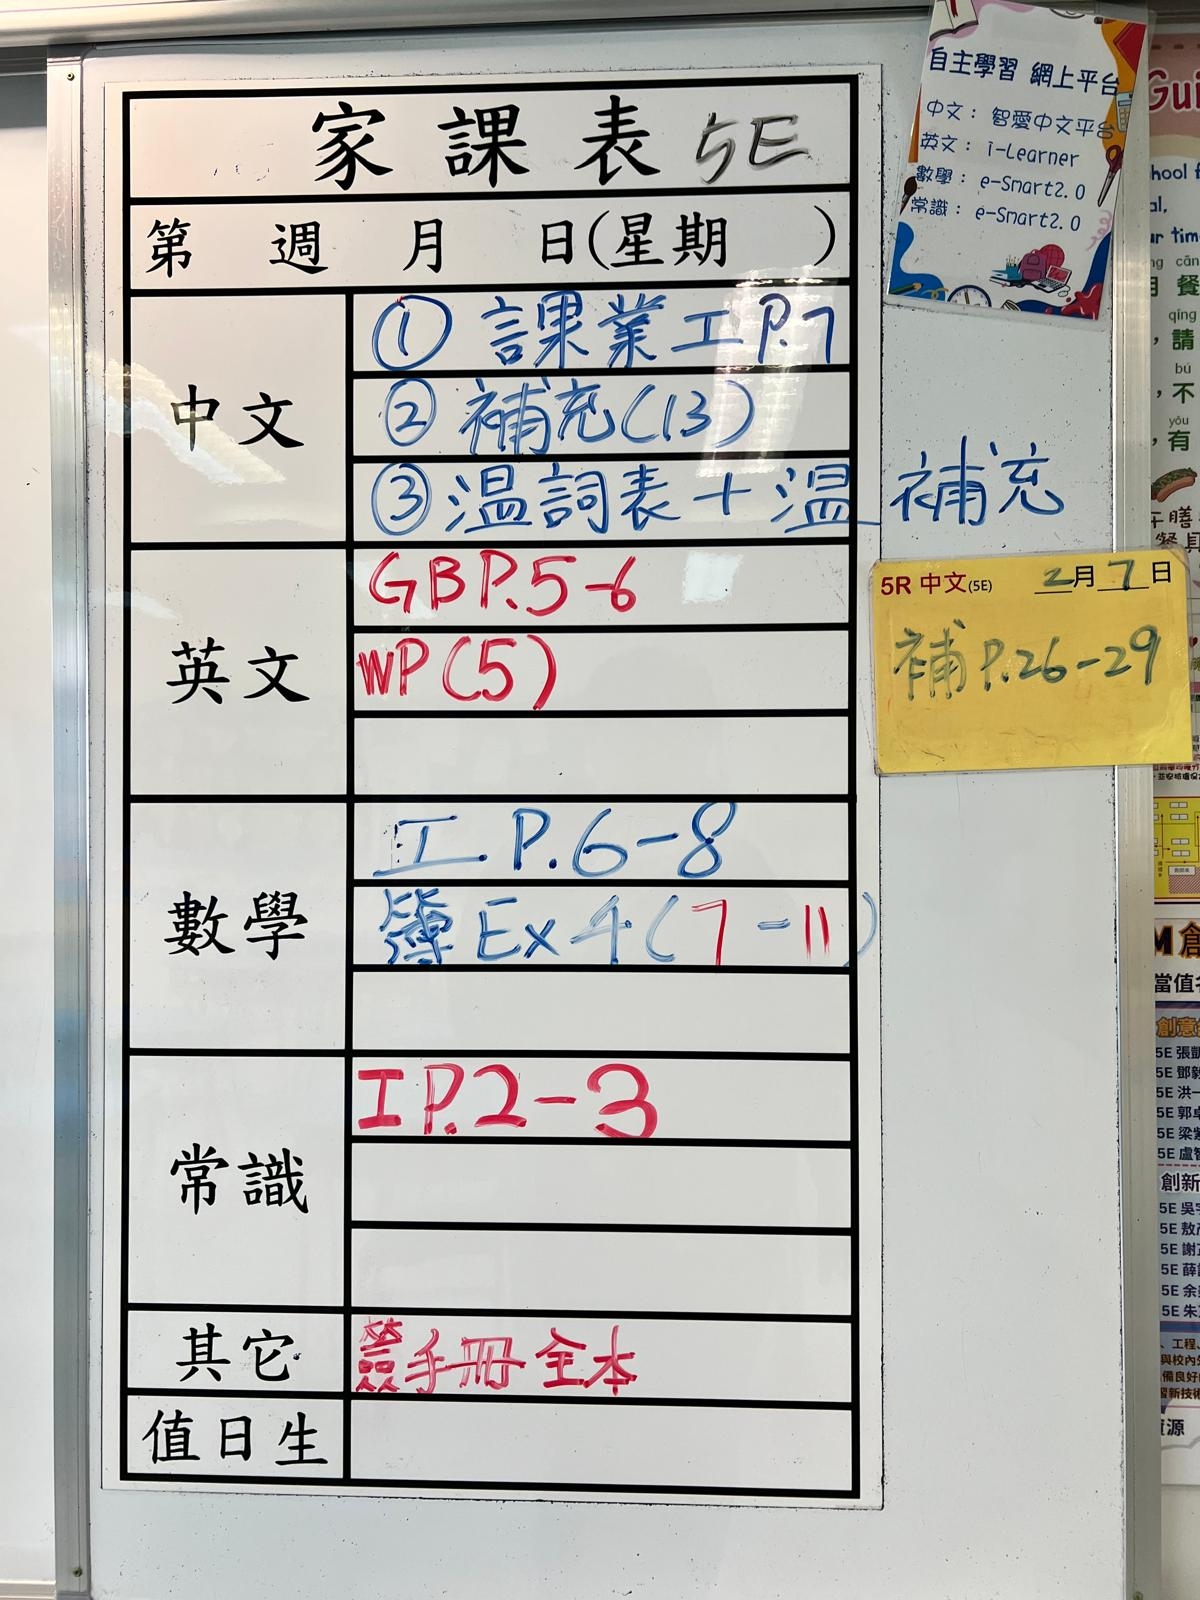 家課表 5E
第 週 月 日(星期 )
中文
① 課業工 P.7
② 補充(13)
③ 温詞表 + 温 補充
英文
GB P.5-6
WP(5)
數學
工. P.6-8
簿 Ex 4 (7-11)
常識
工 P.2-3
其它
簽手冊全本
值日生
自主學習 網上平台
中文：智愛中文平台
英文：i-Learner
數學：e-Smart2.0
常識：e-Smart2.0
5R 中文(5E) 2月7日
補 P.26-29
Gui
hool
al,
ur tim
cān
餐
qǐng
，請
bú
，不
yǒu
，有
M創
當值
創意
5E 張凱
5E 鄧毅
5E 洪一
5E 郭卓
5E 梁紫
5E 盧智
創新
5E 吳宇
5E 敖
5E 謝
5E 薛
5E 余
5E 朱
、工程、
與校內外
備良好
習新技術
資源